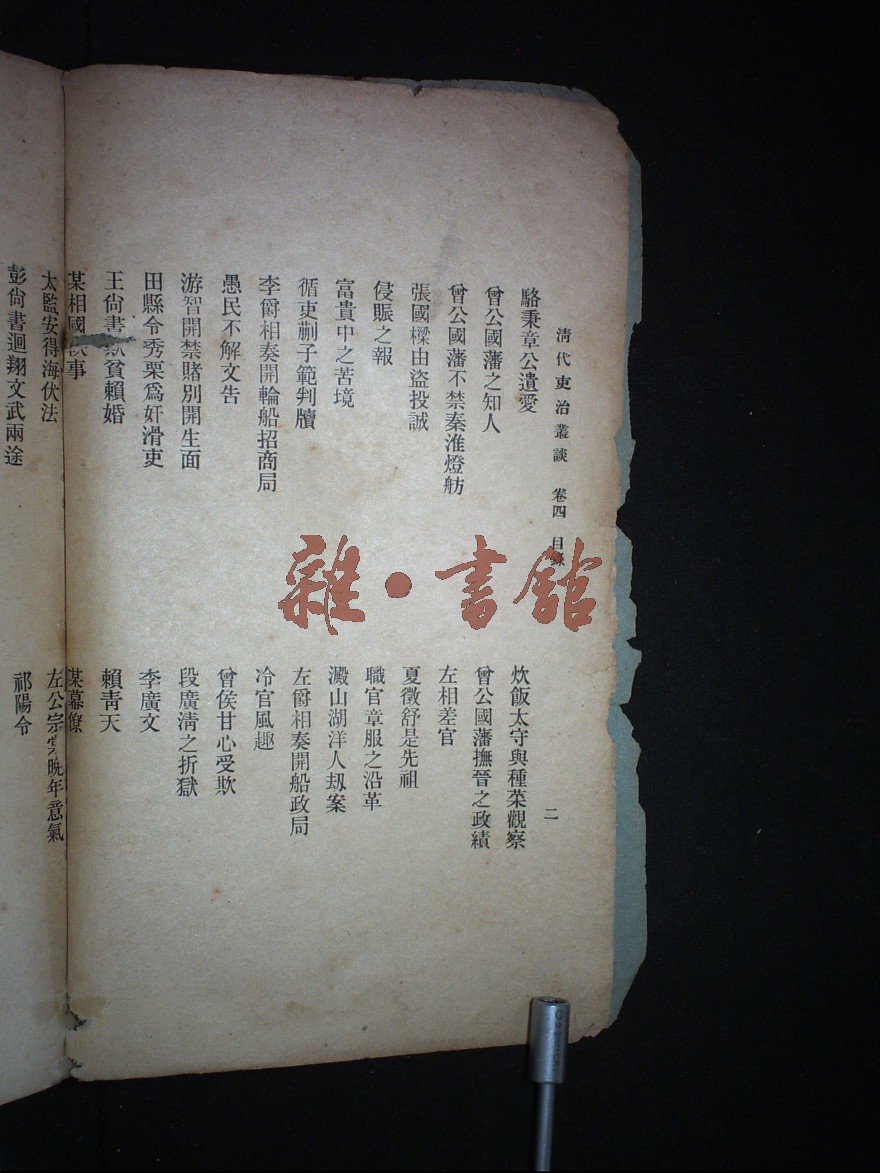 清代吏治叢談 卷四 目錄 二
駱秉章公遺愛
炊飯太守與種菜觀察
曾公國藩之知人
曾公國藩撫晉之政績
曾公國藩不禁秦淮燈舫
左相差官
張國樑由盜投誠
夏徵舒是先祖
侵賑之報
職官章服之沿革
富貴中之苦境
澱山湖洋人刼案
循吏蒯子範判牘
左爵相奏開船政局
李爵相奏開輪船招商局
冷官風趣
愚民不解文告
曾侯甘心受欺
游智開禁賭別開生面
段廣清之折獄
田縣令秀栗爲奸滑吏
李廣文
王尙書 貧賴婚
賴靑天
某相國 事
某幕僚
太監安得海伏法
左公宗棠晩年意氣
彭尙書迴翔文武兩途
祁陽令
雜·書館